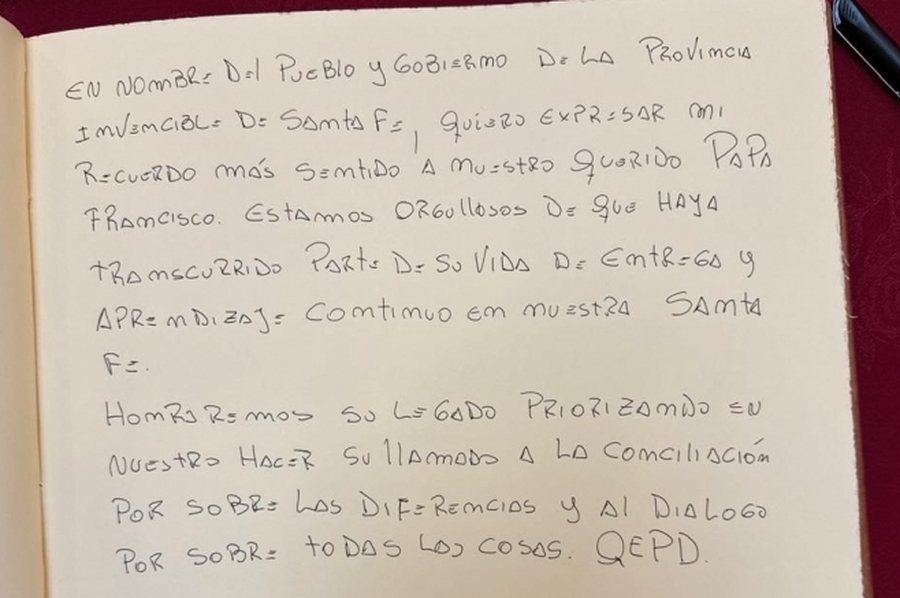 EN NOMBRE DEl PUEBlO y GOBIERNO DE LA PROVINCIA
INVENCIBLE DE SANTA FE, QUIERO EXPRESAR MI
RECUERDO MÁS SENTIDO A NUESTRO QUERIDO PAPA
FRANCISCO. ESTAMOS ORGUllOSOS DE QUE HAYA
TRANSCURRIDO PARTE DE SU VIDA DE ENTREGA y
APRENDIZAJE CONTINUO EN NUESTRA SANTA
FE.
HONRAREMOS SU LEGADO PRIORIZANDO EN
NUESTRO HACER SU llAMADO A LA CONCILIACIÓN
POR SOBRE LAS DIFERENCIAS y Al DIALOGO
POR SOBRE TODAS LAS COSAS. QEPD.